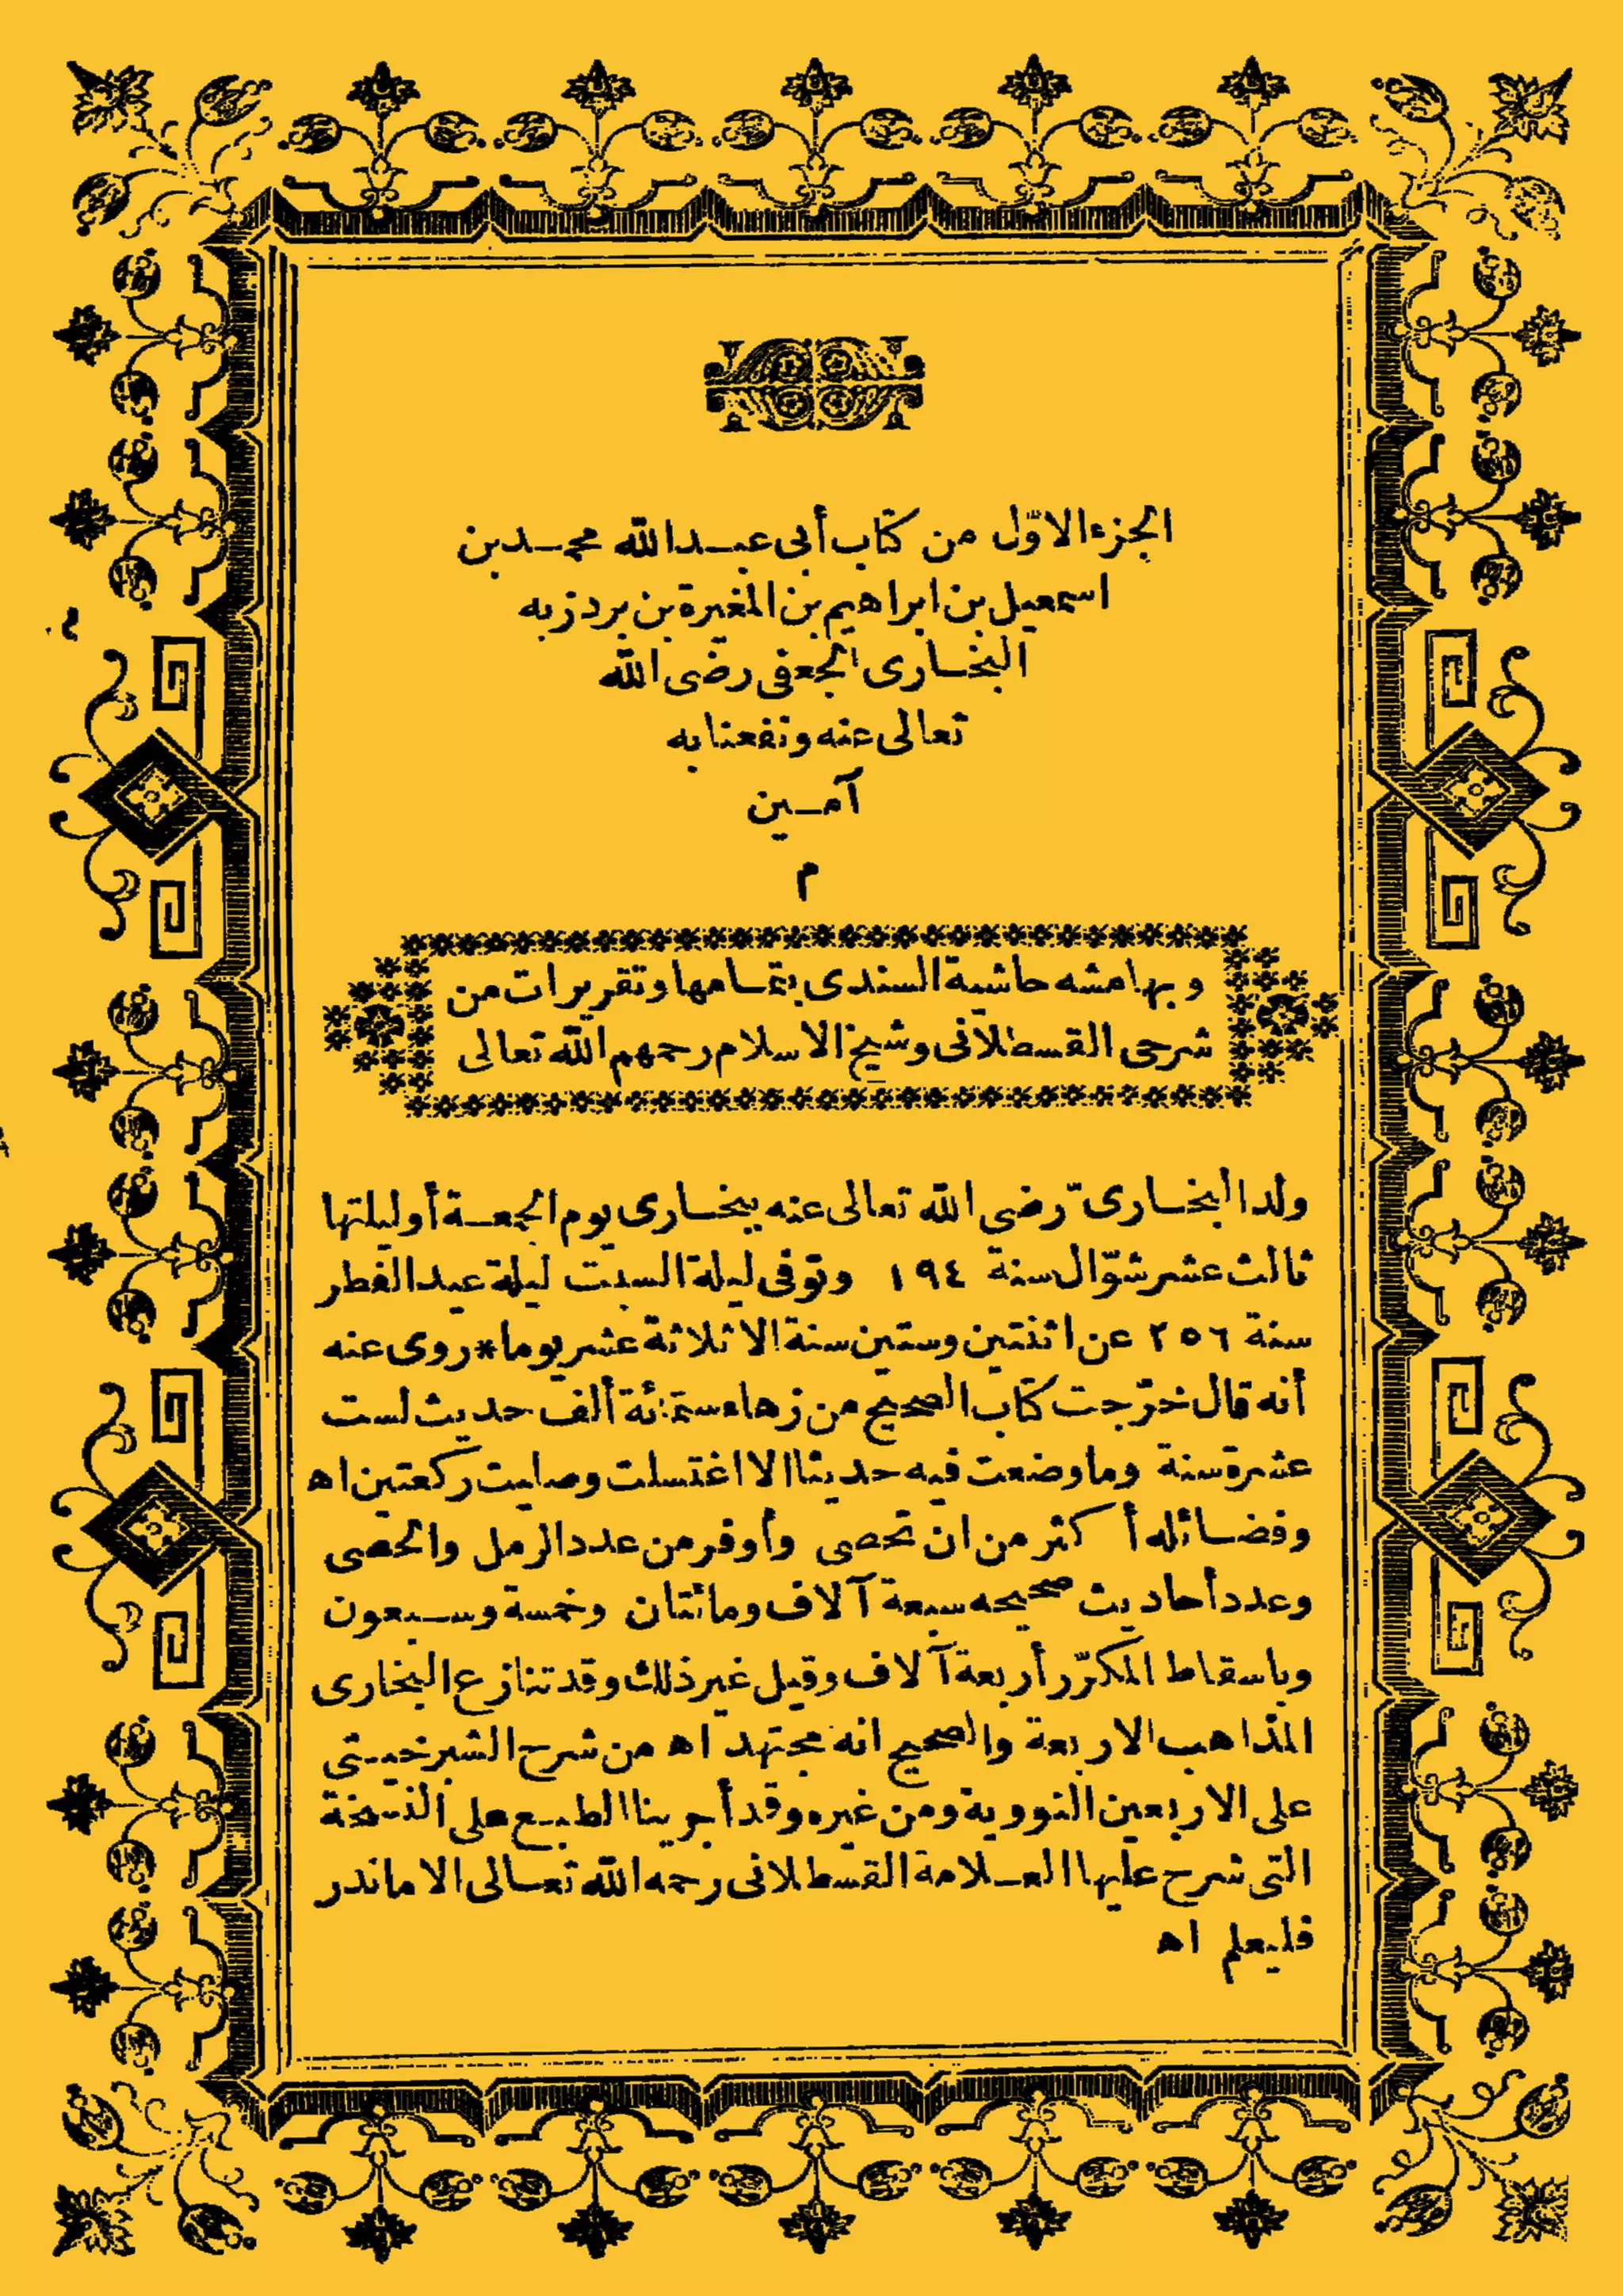 الجزء الاوّل من كتاب أبى عبد الله محمد بن
اسمعيل بن ابراهيم بن المغيرة بن بردزبه
البخارى الجعفى رضى الله
تعالى عنه ونفعنا به
آمين
م
وبهامشه حاشية السندى بتمامها وتقريرات من
شرحى القسطلانى وشيخ الاسلام رحمهم الله تعالى
ولد البخارىّ رضى الله تعالى عنه ببخارى يوم الجمعة أو ليلتها
ثالث عشر شوّال سنة ١٩٤ وتوفى ليلة السبت ليلة عيد الفطر
سنة ٢٥٦ عن اثنتين وستين سنة الا ثلاثة عشر يوما * روى عنه
أنه قال خرّجت كتاب الصحيح من زهاء ستمائة ألف حديث لست
عشرة سنة وما وضعت فيه حديثا الا اغتسلت وصليت ركعتين اه
وفضائله أكثر من ان تحصى وأوفر من عدد الرمل والحصى
وعدد أحاديث صحيحه سبعة آلاف ومائتان وخمسة وسبعون
وباسقاط المكرّر أربعة آلاف وقيل غير ذلك وقد تنازع البخارى
المذاهب الاربعة والصحيح انه مجتهد اه من شرح الشبرخيتى
على الاربعين النووية ومن غيره وقد أجرينا الطبع على النسخة
التى شرح عليها العلامة القسطلانى رحمه الله تعالى الا ما ندر
فليعلم اه